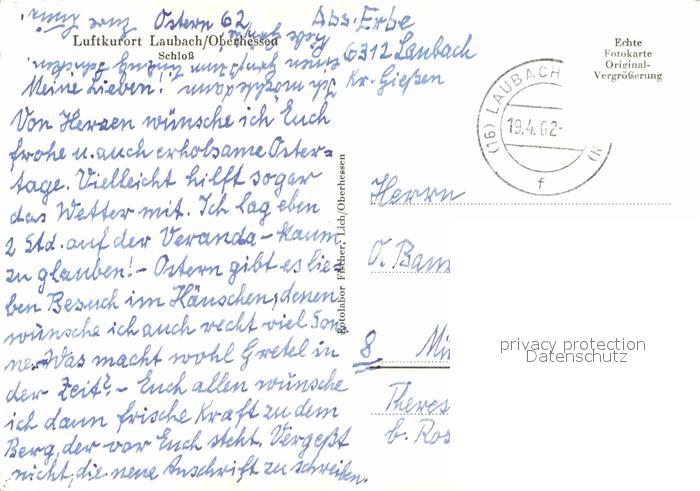 Ostern 62
Luftkurort Laubach/Oberhessen
Schloß
Meine Lieben!
Von Herzen wünsche ich Euch
frohe u. auch erholsame Oster=
tage. Vielleicht hilft sogar
das Wetter mit. Ich lag eben
2 Std. auf der Veranda - kaum
zu glauben! - Ostern gibt es lie-
ben Besuch im Häuschen, denen
wünsche ich auch recht viel Son-
ne. Was macht wohl Gretel in
der Zeit? - Euch allen wünsche
ich dann frische Kraft zu dem
Berg, der vor Euch steht. Vergeßt
nicht, die neue Anschrift zu schreiben.
Fotolabor Fischer, Lich/Oberhessen
Abs. Erbe
6312 Laubach
Kr. Gießen
Echte
Fotokarte
Original-
Vergrößerung
(16) LAUBACH
19.4.62-
f
Herrn
O. Bam
8 Mü
Theres
b. Ros
privacy protection
Datenschutz